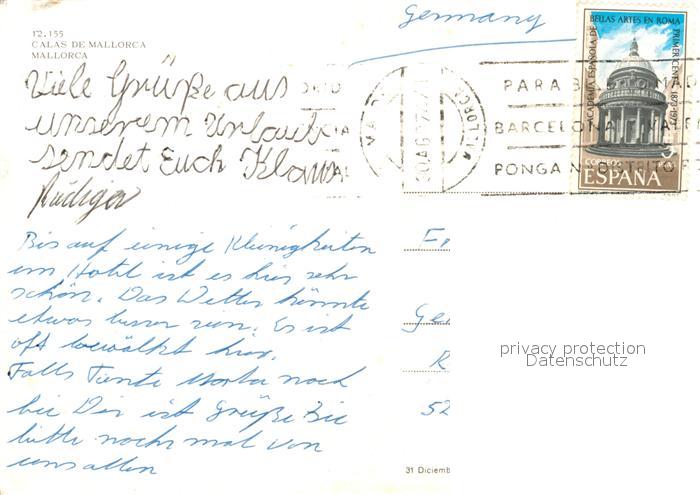 Germany
12.155
CALAS DE MALLORCA
MALLORCA
Viele Grüße aus
unserem Urlaub
sendet Euch Klaus
Rüdiger
Bis auf einige Kleinigkeiten
im Hotel ist es hier sehr
schön. Das Wetter könnte
etwas besser sein. Es ist
oft bewölkt hier.
Falls Tante noch
bei Dir ist Grüße Sie
bitte noch mal von
uns allen
PARA
BARCELONA
PONGA DISTRITO
ACADEMIA ESPAÑOLA DE
BELLAS ARTES EN ROMA
PRIMER CENT. 1873-1973
CORREOS
ESPAÑA
R
52
privacy protection
Datenschutz
31 Diciemb